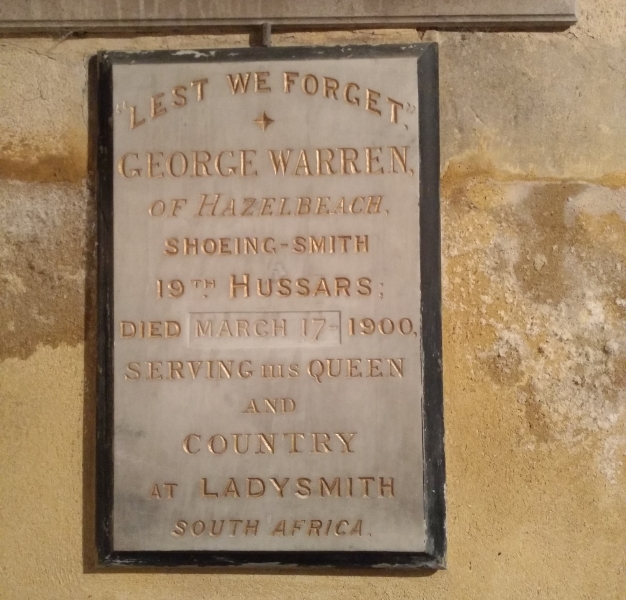 "LEST WE FORGET",
GEORGE WARREN,
OF HAZELBEACH,
SHOEING-SMITH
19TH HUSSARS;
DIED MARCH 17 1900,
SERVING HIS QUEEN
AND
COUNTRY
AT LADYSMITH
SOUTH AFRICA.